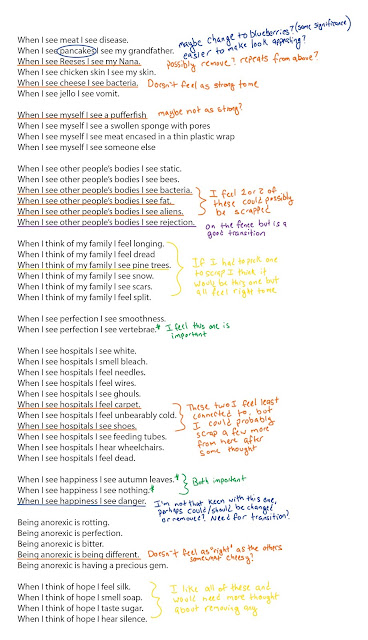 When I see meat I see disease.
maybe change to blueberries? (same significance)
easier to make look appealing?
When I see pancakes I see my grandfather.
When I see Reeses I see my Nana.
possibly remove? repeats from above?
When I see chicken skin I see my skin.
When I see cheese I see bacteria.
Doesn't feel as strong to me
When I see jello I see vomit.
When I see myself I see a pufferfish
maybe not as strong?
When I see myself I see a swollen sponge with pores
When I see myself I see meat encased in a thin plastic wrap
When I see myself I see someone else
When I see other people's bodies I see static.
When I see other people's bodies I see bees.
When I see other people's bodies I see bacteria.
When I see other people's bodies I see fat.
When I see other people's bodies I see aliens.
I feel 2 or
these could possibly
be scrapped
When I see other people's bodies I see rejection.
on the fence but is a
good transition
When I think of my family I feel longing.
When I think of my family I feel dread
When I think of my family I see pine trees.
When I think of my family I see snow.
When I think of my family I see scars.
When I think of my family I feel split.
If I had to pick one
to scrap I think it
would be this one but
all feel right to me
When I see perfection I see smoothness.
When I see perfection I see vertebrae.*
I feel this one is
important
When I see hospitals I see white.
When I see hospitals I smell bleach.
When I see hospitals I feel needles.
When I see hospitals I feel wires.
When I see hospitals I see ghouls.
When I see hospitals I feel carpet.
When I see hospitals I feel unbearably cold.
When I see hospitals I see shoes.
When I see hospitals I see feeding tubes.
When I see hospitals I hear wheelchairs.
When I see hospitals I feel dead.
These two I feel least
connected to, but
I could probably
scrap a few more
from here after
some thought
When I see happiness I see autumn leaves.*
When I see happiness I see nothing.*
Both important
When I see happiness I see danger.
I'm not that keen with this one,
perhaps could/should be changed
or removed? Need for transition?
Being anorexic is rotting.
Being anorexic is perfection.
Being anorexic is bitter.
Being anorexic is being different.
Doesn't feel as "right" as the others
somewhat cheesy?
Being anorexic is having a precious gem.
When I think of hope I feel silk.
When I think of hope I smell soap.
When I think of hope I taste sugar.
When I think of hope I hear silence.
I like all of these and
would need more thought
about removing any